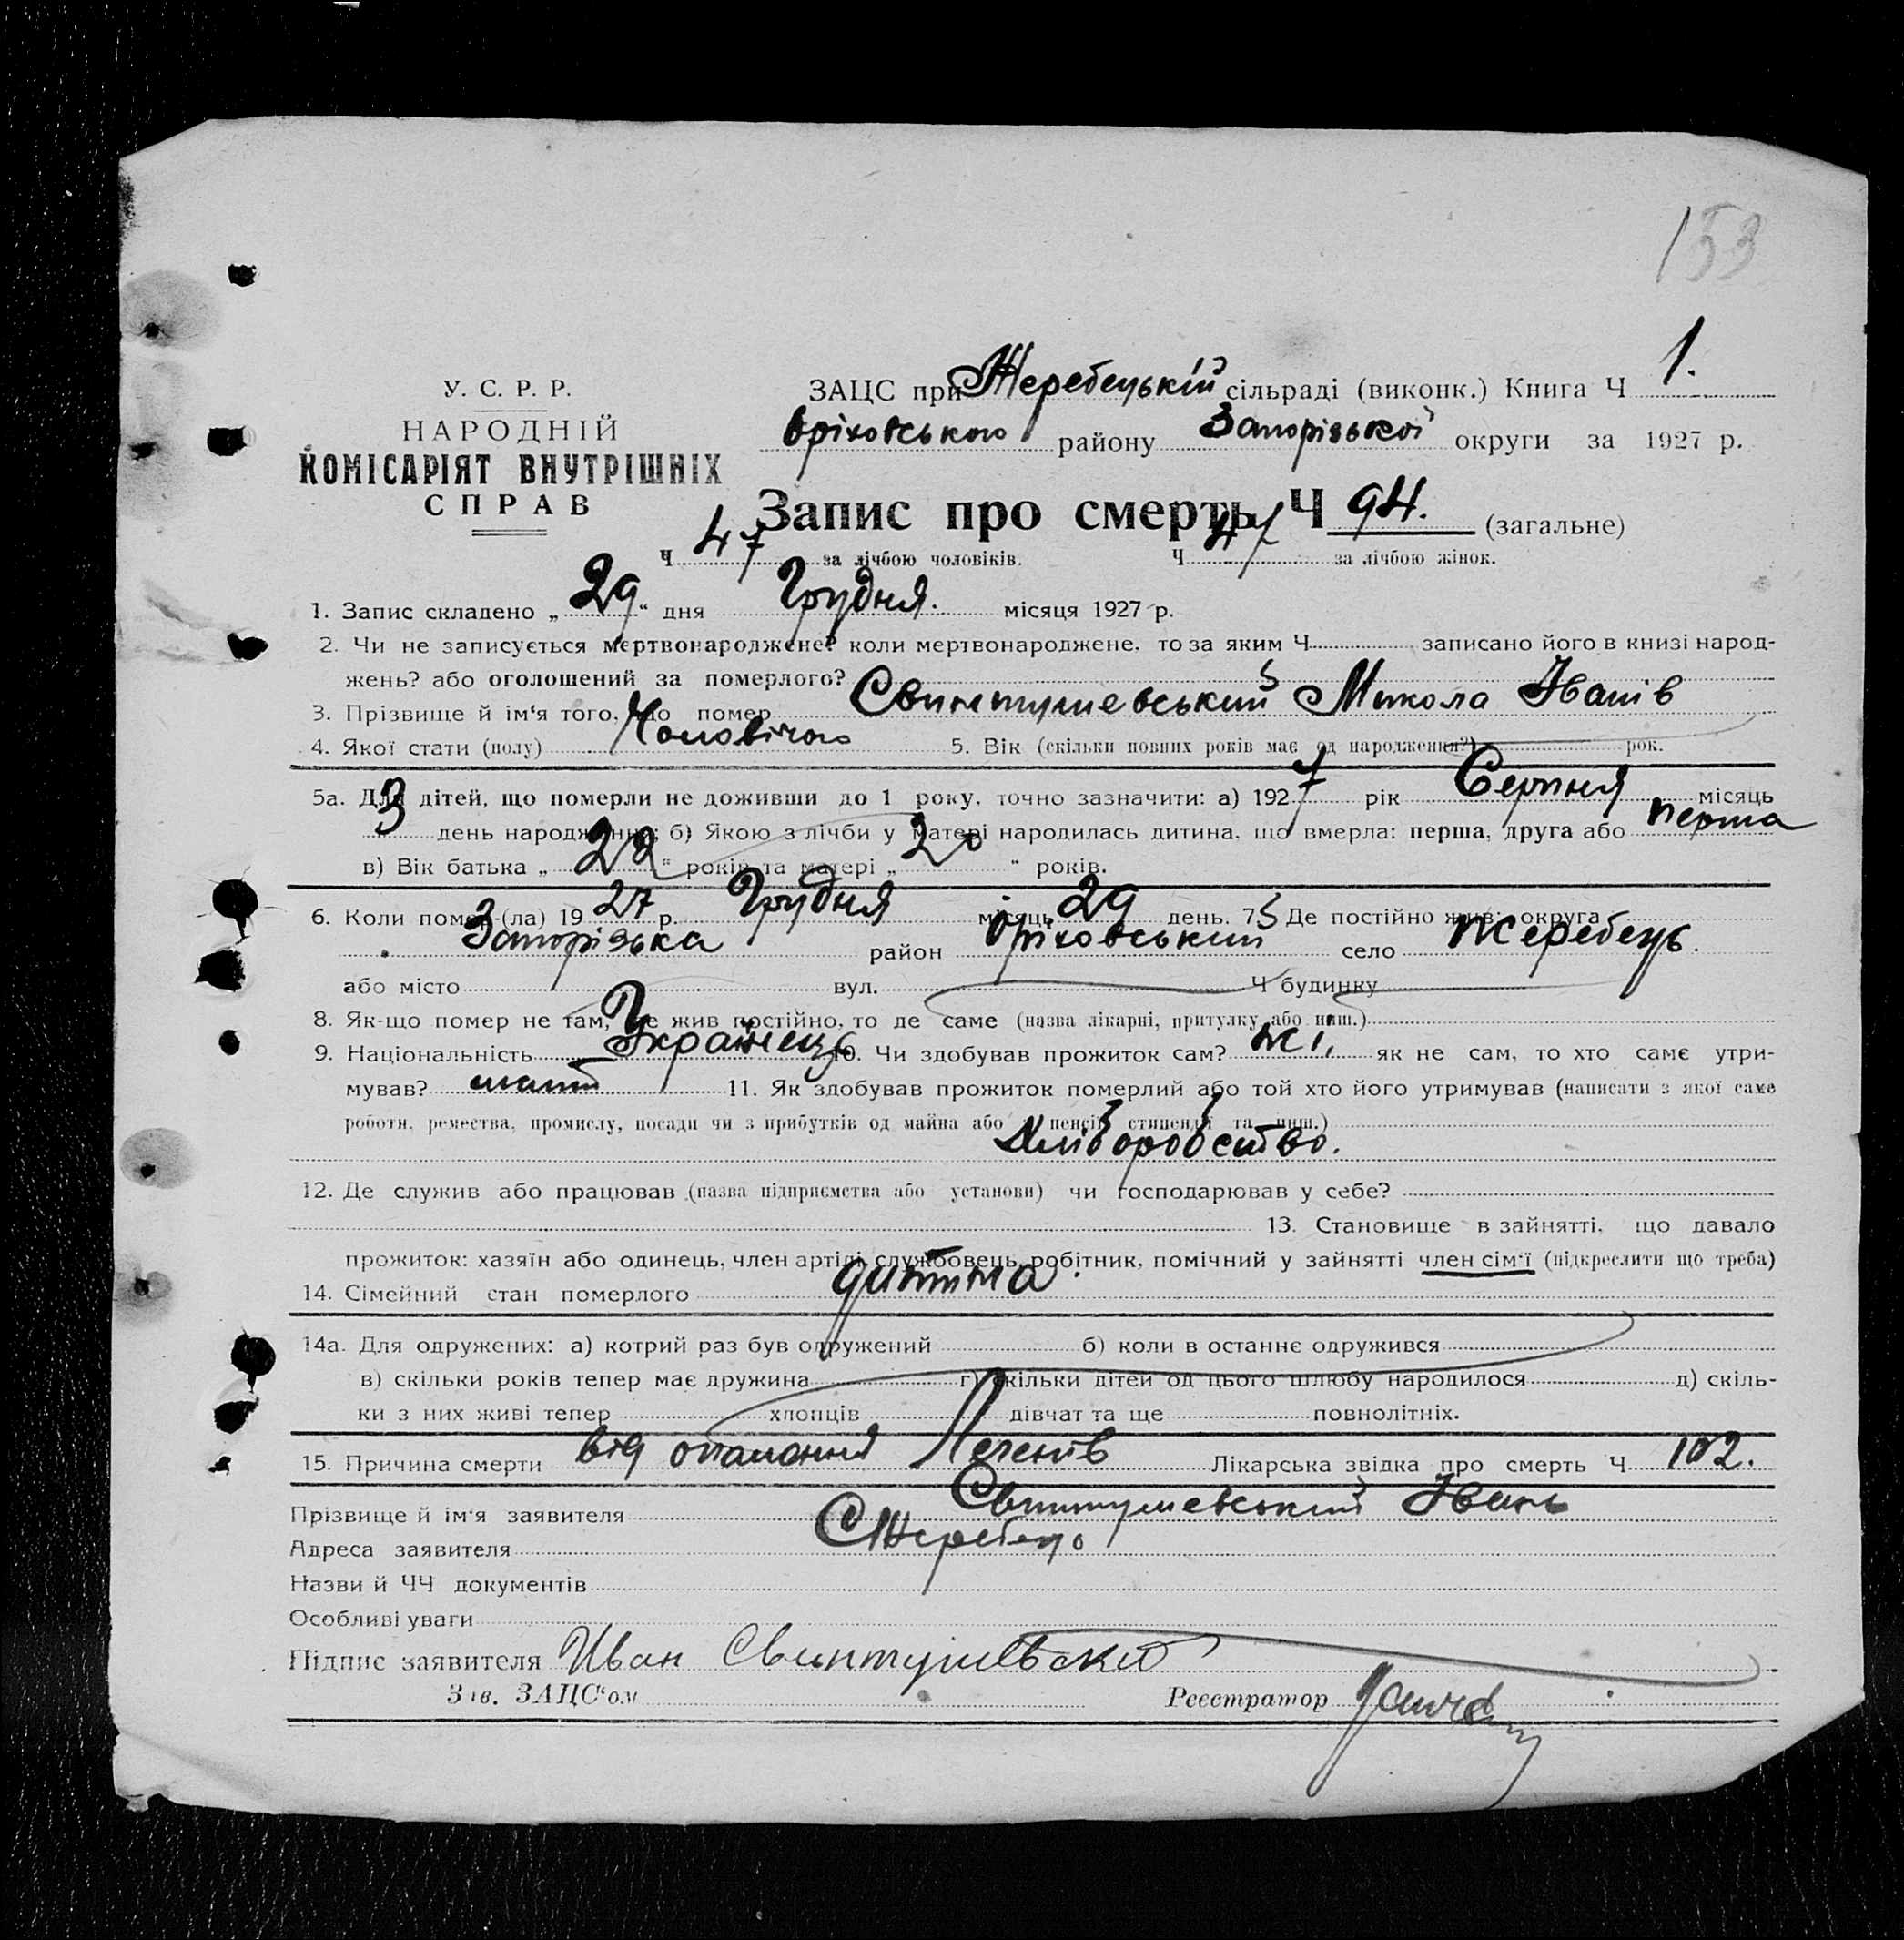 153
У. С. Р. Р.
НАРОДНІЙ
КОМІСАРІЯТ ВНУТРІШНІХ
СПРАВ
ЗАЦС при Жеребецькій сільраді (виконк.) Книга Ч 1.
Оріховського району Запорізької округи за 1927 р.
Запис про смерть Ч 94. (загальне)
Ч 47 за лічбою чоловіків. Ч 47 за лічбою жінок.
1. Запис складено „ 29 “ дня Грудня. місяця 1927 р.
2. Чи не записується мертвонароджене? коли мертвонароджене, то за яким Ч записано його в книзі народ-
жень? або оголошений за померлого?
3. Прізвище й ім'я того, що помер Свинтушевський Микола Іванів
4. Якої стати (полу) Чоловічою 5. Вік (скільки повних років має од народження?) рок.
5а. Для дітей, що померли не доживши до 1 року, точно зазначити: а) 1927 рік Серпня місяць
3 день народження; б) Якою з лічби у матері народилась дитина, що вмерла: перша, друга або перша
в) Вік батька „ 22 “ років та матері „ 20 “ років.
6. Коли помер (ла) 1927 р. Грудня місяць 29 день. 7. Де постійно жив: округа
Запорізька район Оріховський село Жеребець.
або місто вул. Ч будинку
8. Як-що помер не там, де жив постійно, то де саме (назва лікарні, притулку або инш.)
9. Національність Українець 10. Чи здобував прожиток сам? Ні, як не сам, то хто саме утри-
мував? 11. Як здобував прожиток померлий або той хто його утримував (написати з якої саме
роботи, ремества, промислу, посади чи з прибутків од майна або з пенсії, стипендії та инш.)
Хліборобство.
12. Де служив або працював (назва підприємства або установи) чи господарював у себе?
13. Становище в зайнятті, що давало
прожиток: хазяїн або одинець, член артілі, службовець, робітник, помічний у зайнятті член сім'ї (підкреслити що треба)
14. Сімейний стан померлого дитина.
14а. Для одружених: а) котрий раз був одружений б) коли в останнє одружився
в) скільки років тепер має дружина г) скільки дітей од цього шлюбу народилося д) скіль-
ки з них живі тепер хлопців дівчат та ще повнолітніх.
15. Причина смерти від опалення Легенів Лікарська звідка про смерть Ч 102.
Прізвище й ім'я заявителя Свинтушевський Іван
Адреса заявителя С Жеребець
Назви й ЧЧ документів
Особливі уваги
Підпис заявителя Иван Свинтушевский
Зав. ЗАЦС'ом Реєстратор